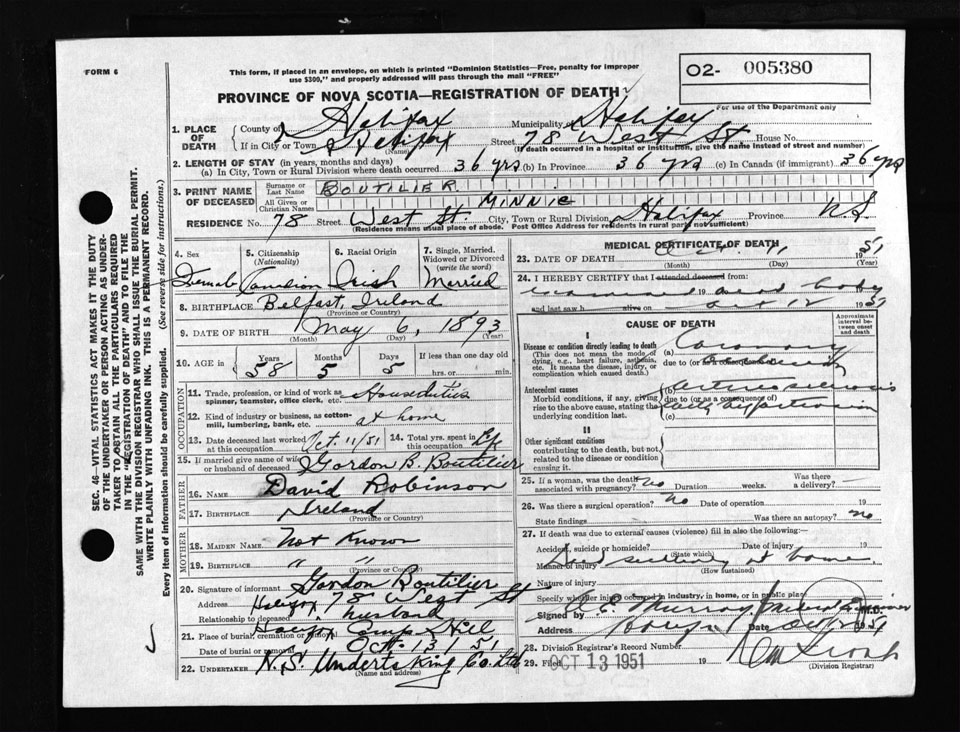 FORM 6
This form, if placed in an envelope, on which is printed "Dominion Statistics—Free, penalty for improper
use $300," and properly addressed will pass through the mail "FREE"
O2- 005380
For use of the Department only
PROVINCE OF NOVA SCOTIA—REGISTRATION OF DEATH
1. PLACE OF DEATH
County of Halifax Municipality of Halifax
If in City or Town Halifax Street 78 West St House No.
(Name) (If death occurred in a hospital or institution, give the name instead of street and number)
2. LENGTH OF STAY (in years, months and days)
(a) In City, Town or Rural Division where death occurred 36 yrs (b) In Province 36 yrs (c) In Canada (if immigrant) 36 yrs
3. PRINT NAME OF DECEASED
Surname or Last Name BOUTILIER
All Given or Christian Names MINNIE
RESIDENCE No. 78 Street West St. City, Town or Rural Division Halifax Province N.S.
(Residence means usual place of abode. Post Office Address for residents in rural parts not sufficient)
4. Sex 5. Citizenship (Nationality) 6. Racial Origin 7. Single, Married, Widowed or Divorced (write the word)
Female Canadian Irish Married
8. BIRTHPLACE Belfast, Ireland
(Province or Country)
9. DATE OF BIRTH May 6, 1893
(Month) (Day) (Year)
10. AGE in Years Months Days If less than one day old
58 5 5 hrs. or min.
OCCUPATION
11. Trade, profession, or kind of work as spinner, teamster, office clerk, etc. Houseduties
12. Kind of industry or business, as cotton-mill, lumbering, bank, etc. at home
13. Date deceased last worked at this occupation Oct. 11/51 14. Total yrs. spent in this occupation
15. If married give name of wife or husband of deceased Gordon B. Boutilier
FATHER
16. NAME David Robinson
17. BIRTHPLACE Ireland
(Province or Country)
MOTHER
18. MAIDEN NAME Not Known
19. BIRTHPLACE " "
(Province or Country)
20. Signature of informant Gordon Boutilier
Address Halifax 78 West St
Relationship to deceased husband
21. Place of burial, cremation or removal Camp Hill
Date of burial or removal Oct. 13/51
22. UNDERTAKER N.S. Undertaking Co. Ltd
(Name and address)
MEDICAL CERTIFICATE OF DEATH
23. DATE OF DEATH Oct. 11 1951
(Month) (Day) (Year)
24. I HEREBY CERTIFY that I attended deceased from
examined dead body
and last saw h alive on Oct 12 1951
CAUSE OF DEATH
Approximate interval between onset and death
I
Disease or condition directly leading to death
(This does not mean the mode of dying, e.g., heart failure, asthenia, etc. It means the disease, injury, or complication which caused death.)
(a) Coronary
due to (or as a consequence of)
Antecedent causes
Morbid conditions, if any, giving rise to the above cause, stating the underlying condition last.
(b) Arteriosclerosis
due to (or as a consequence of)
(c) hypertension
II
Other significant conditions
contributing to the death, but not related to the disease or condition causing it.
25. If a woman, was the death associated with pregnancy? no Duration weeks. Was there a delivery? -
26. Was there a surgical operation? no Date of operation 19
State findings Was there an autopsy? no
27. If death was due to external causes (violence) fill in also the following:—
Accident, suicide or homicide? Date of injury 19
(State which)
Manner of injury
(How sustained)
Nature of injury
Specify whether injury occurred in industry, in home, or in public place
Signed by A.E. Murray Medical Examiner M.D.
Address Date Oct 12 1951
28. Division Registrar's Record Number
29. Filed OCT 13 1951 19
(Division Registrar)
SEC. 46—VITAL STATISTICS ACT MAKES IT THE DUTY
OF THE UNDERTAKER OR PERSON ACTING AS UNDER-
TAKER TO OBTAIN ALL THE PARTICULARS REQUIRED
IN THE "REGISTRATION OF DEATH" AND TO FILE THE
SAME WITH THE DIVISION REGISTRAR WHO SHALL ISSUE THE BURIAL PERMIT.
WRITE PLAINLY WITH UNFADING INK. THIS IS A PERMANENT RECORD.
Every item of information should be carefully supplied. (See reverse side for instructions.)